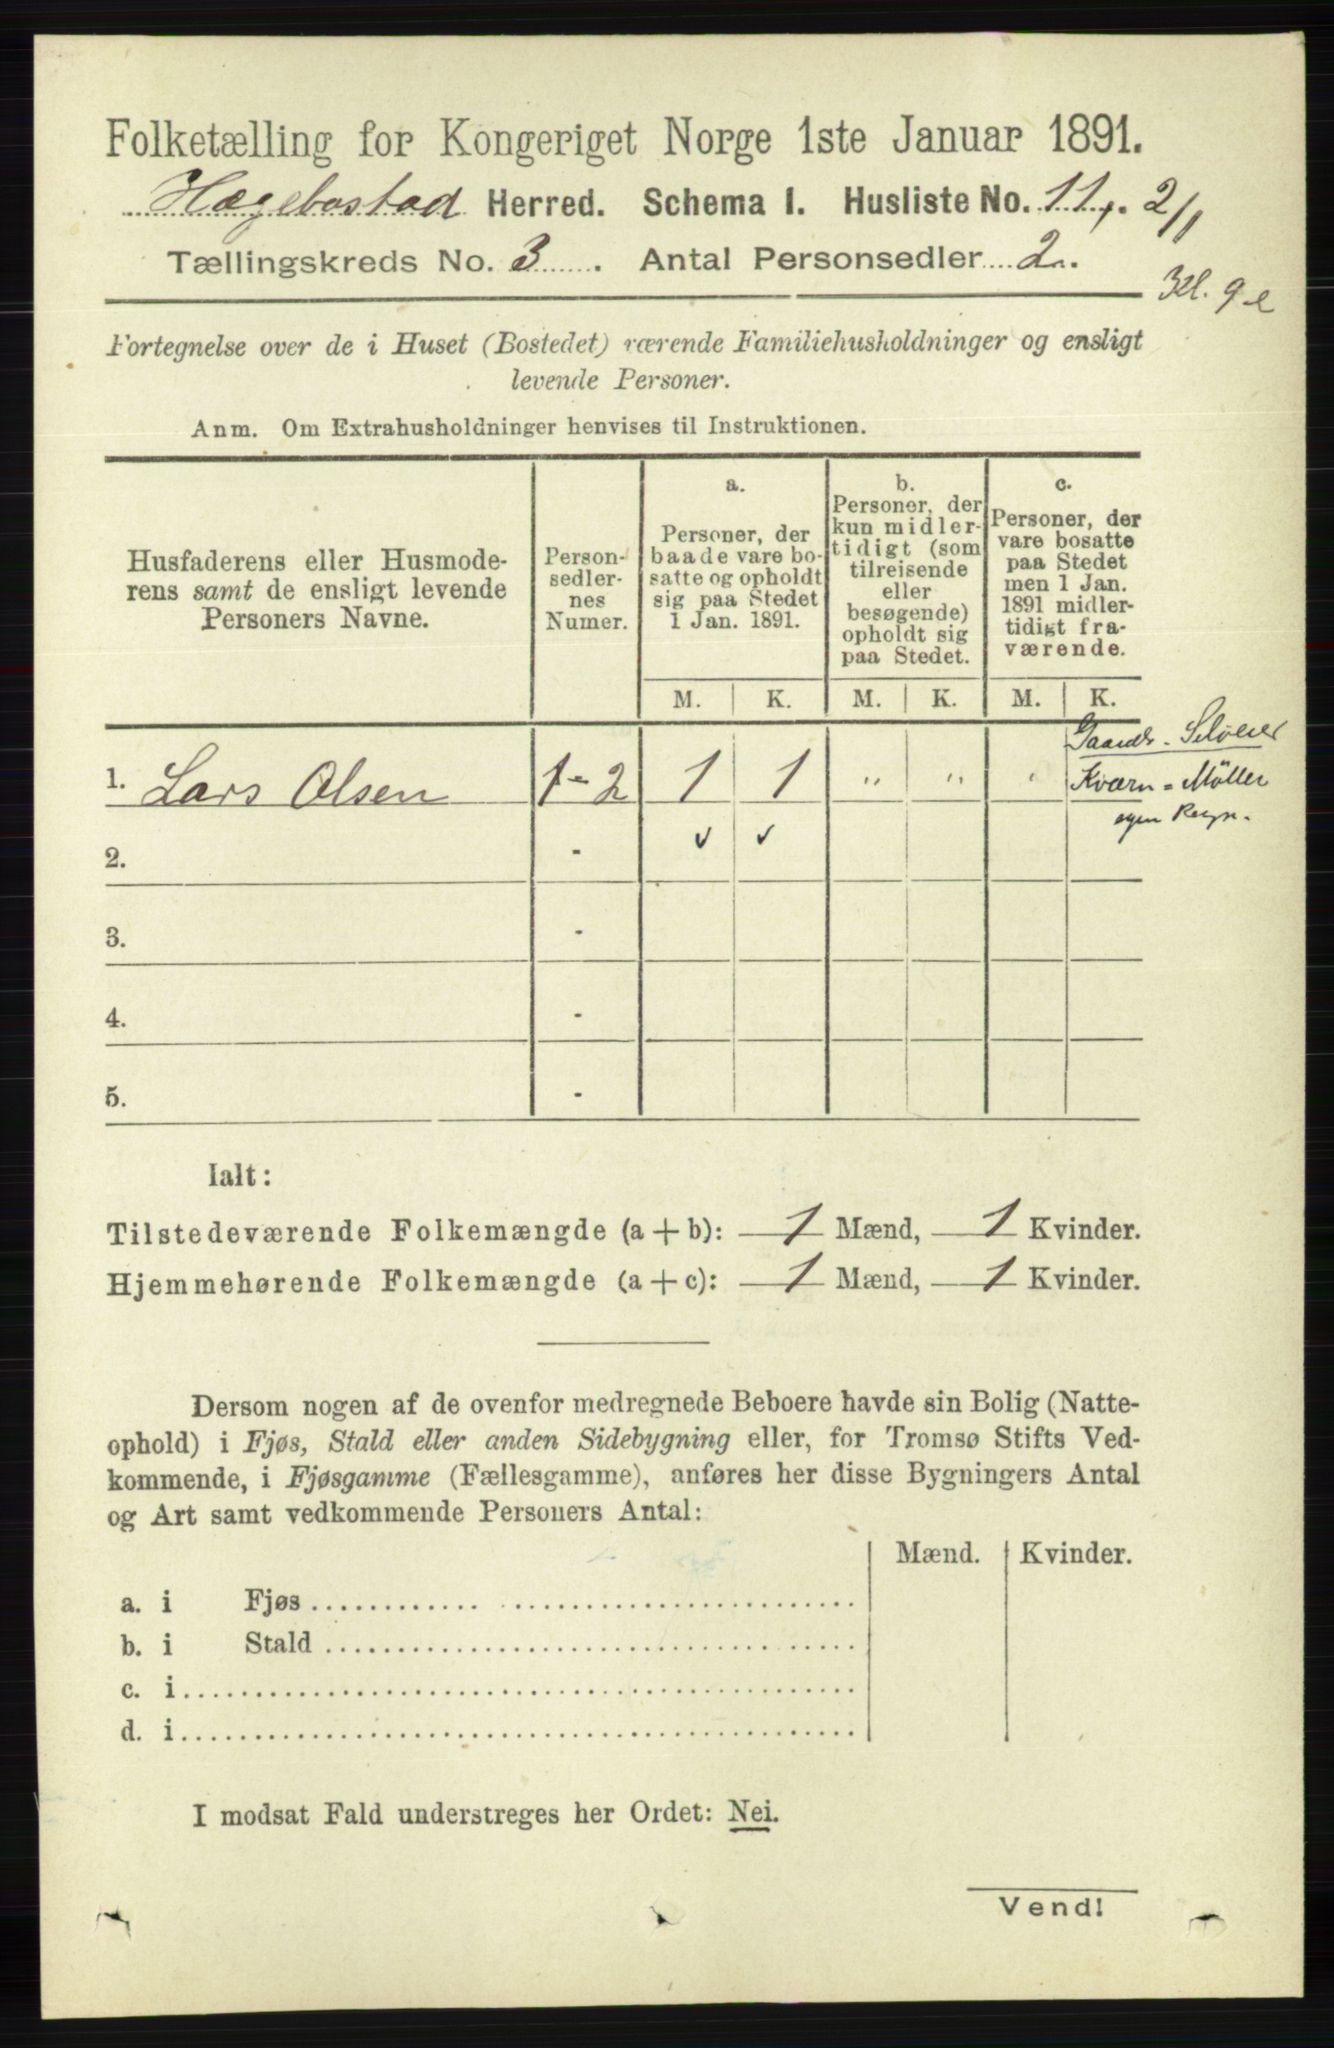 Folketælling for Kongeriget Norge 1ste Januar 1891.
Hægebostad Herred. Schema I. Husliste No. 11. 2/1
Tællingskreds No. 3. Antal Personsedler 2.
Kl. 9 e
Fortegnelse over de i Huset (Bostedet) værende Familiehusholdninger og ensligt
levende Personer.
Anm. Om Extrahusholdninger henvises til Instruktionen.
Husfaderens eller Husmode-
rens samt de ensligt levende
Personers Navne.
Person-
sedler-
nes
Numer.
a.
Personer, der
baade vare bo-
satte og opholdt
sig paa Stedet
1 Jan. 1891.
b.
Personer, der
kun midler-
tidigt (som
tilreisende
eller
besøgende)
opholdt sig
paa Stedet.
c.
Personer, der
vare bosatte
paa Stedet
men 1 Jan.
1891 midler-
tidigt fra-
værende.
M. K. M. K. M. K.
Gaardb. - Selveier
1. Lars Olsen 1 - 2 1 1 " " " Kværn = Möller
egen Regn.
2. - ✓ ✓
3. -
4. -
5. -
Ialt:
Tilstedeværende Folkemængde (a + b): 1 Mænd, 1 Kvinder.
Hjemmehørende Folkemængde (a + c): 1 Mænd, 1 Kvinder.
Dersom nogen af de ovenfor medregnede Beboere havde sin Bolig (Natte-
ophold) i Fjøs, Stald eller anden Sidebygning eller, for Tromsø Stifts Ved-
kommende, i Fjøsgamme (Fællesgamme), anføres her disse Bygningers Antal
og Art samt vedkommende Personers Antal:
Mænd. Kvinder.
a. i Fjøs
b. i Stald
c. i
d. i
I modsat Fald understreges her Ordet: Nei.
Vend!